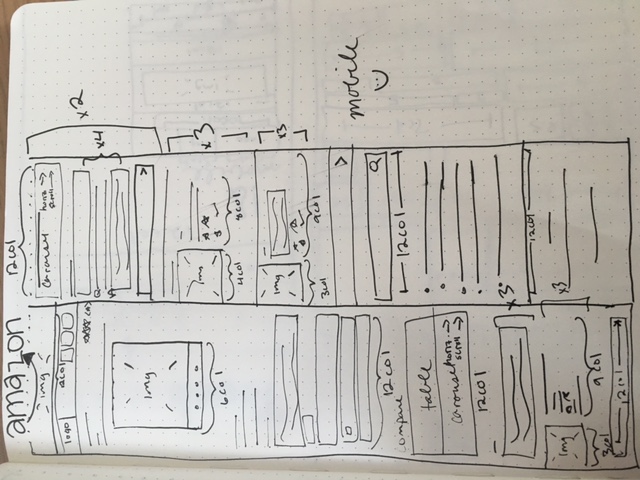 amazon
img
logo
12col
img
6col
12col
Compare
table
Carousel horiz. scroll
12col
x3
img
3col
9col
12col
12col
Carousel horiz scroll
Q
A
x4
x2
img
4col
8col
x3
img
3col
9col
x3
12col
12col
x3
mobile